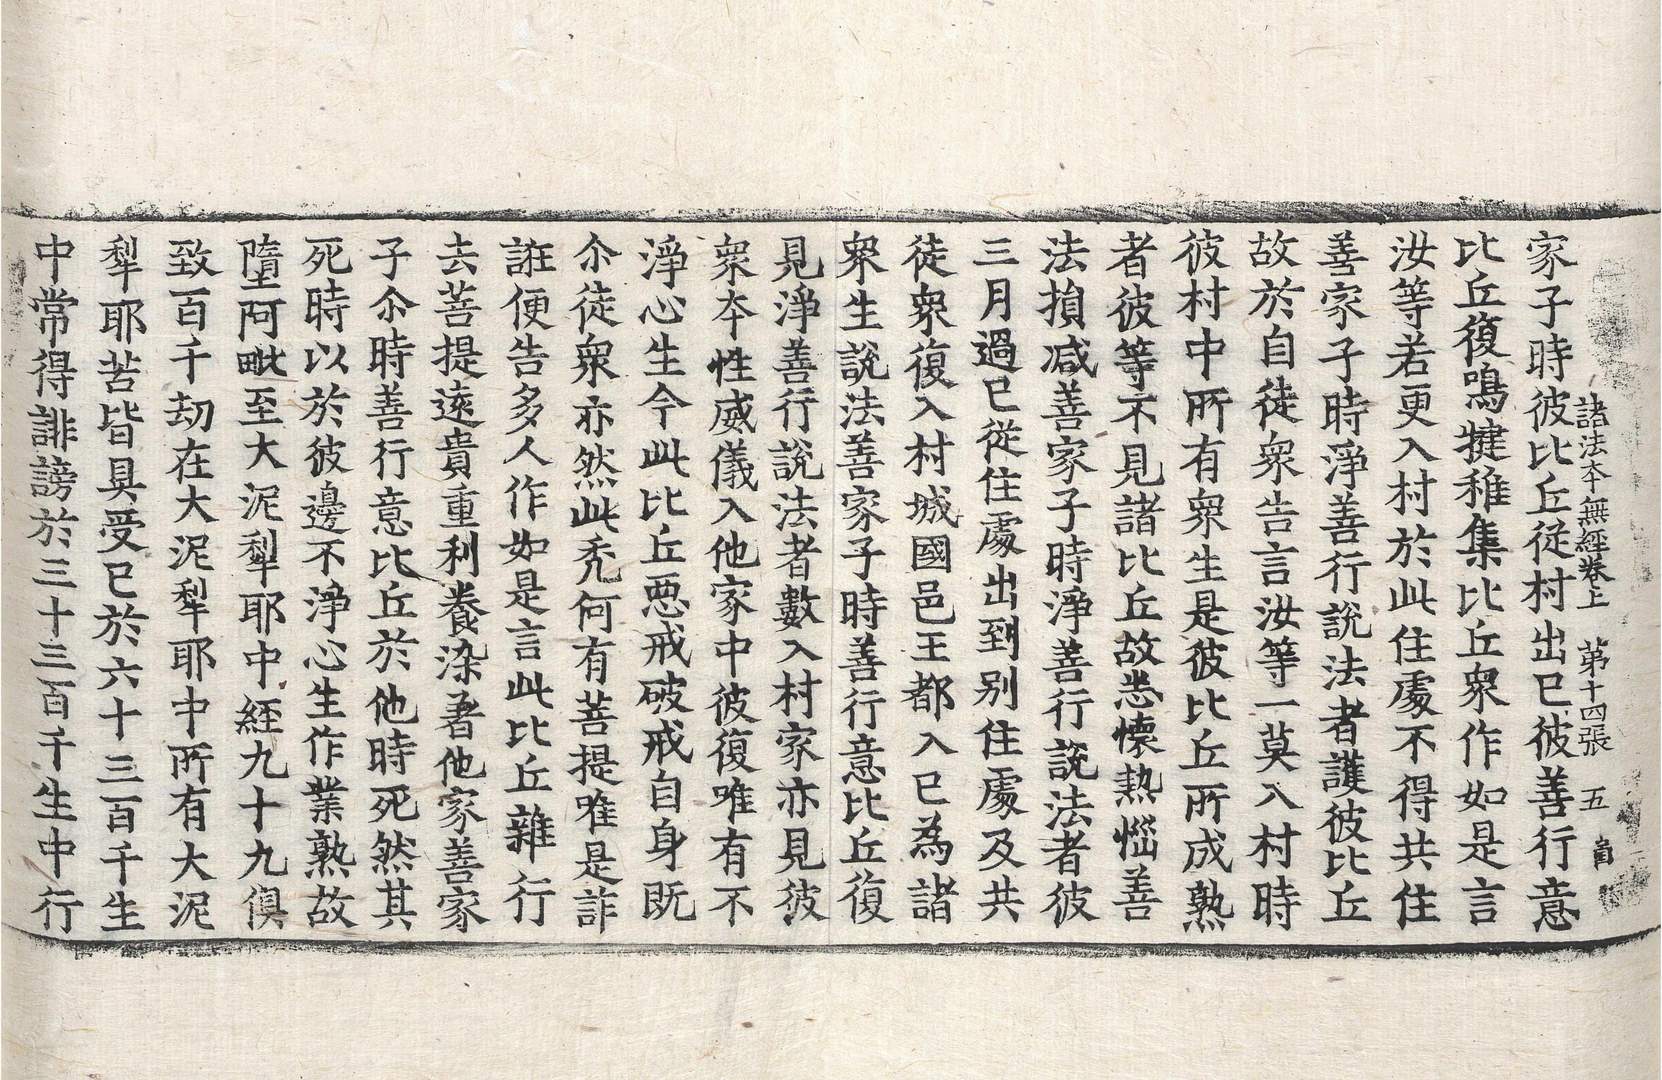 諸法本無經卷上　第十四張　五
家子時彼比丘從村出已彼善行意
比丘復鳴揵稚集比丘衆作如是言
汝等若更入村於此住處不得共住
善家子時淨善行說法者護彼比丘
故於自徒衆告言汝等一莫入村時
彼村中所有衆生是彼比丘所成熟
者彼等不見諸比丘故恙懷熱惱善
法損减善家子時淨善行說法者彼
三月過已從住處出到別住處及共
徒衆復入村城國邑王都入已為諸
衆生說法善家子時善行意比丘復
見淨善行說法者數入村家亦見彼
衆本性威儀入他家中彼復唯有不
淨心生今此比丘惡戒破戒自身既
尒徒衆亦然此禿何有菩提唯是詐
誑便告多人作如是言此比丘雜行
去菩提遠貴重利養染著他家善家
子尒時善行意比丘於他時死然其
死時以於彼邊不淨心生作業熟故
墮阿毗至大泥犁耶中經九十九俱
致百千劫在大泥犁耶中所有大泥
犁耶苦皆具受已於六十三百千生
中常得誹謗於三十三百千生中行